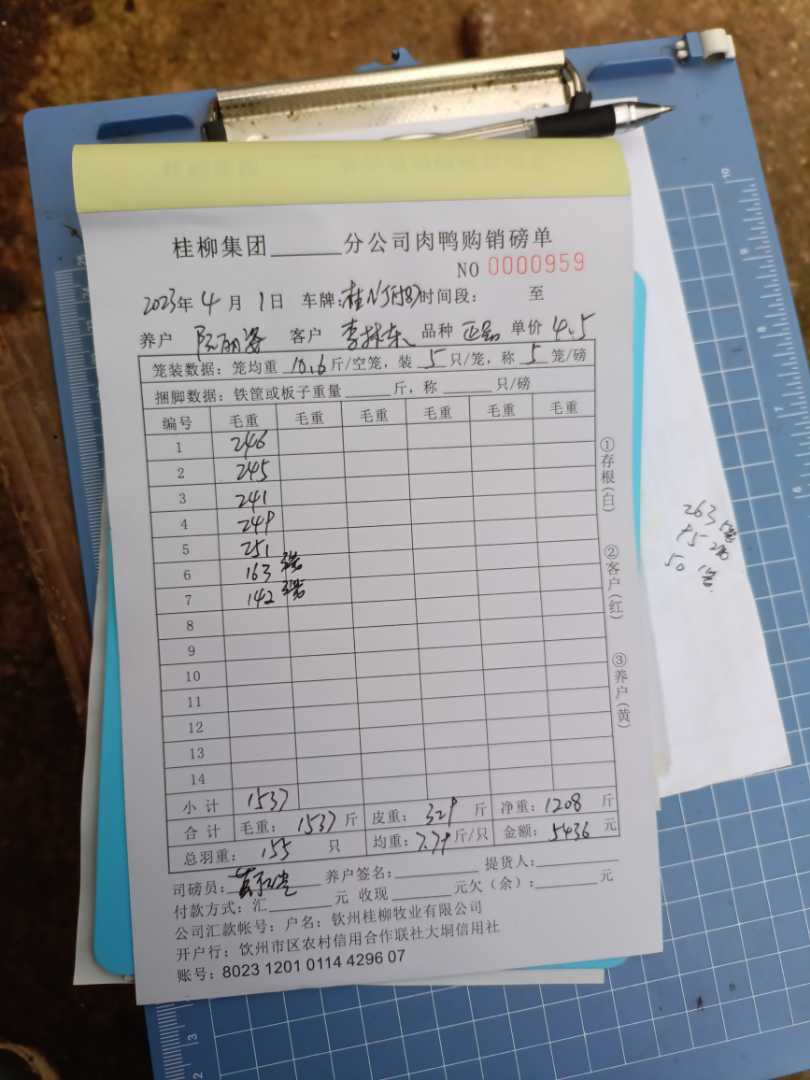 桂柳集团______分公司肉鸭购销磅单
NO 0000959
2023年 4 月 1 日 车牌:桂N 时间段: 至
养户 阮丽 客户 李林东 品种 正品 单价 4.5
笼装数据:笼均重 10.6 斤/空笼,装 5 只/笼,称 5 笼/磅
捆脚数据:铁筐或板子重量______斤,称______只/磅
编号 毛重 毛重 毛重 毛重 毛重 毛重
1 246
2 245
3 241
4 249
5 251
6 163 3笼
7 142 3笼
8
9
10
11
12
13
14
小 计 1537
合 计 毛重: 1537 斤 皮重: 329 斤 净重: 1208 斤
总羽重: 155 只 均重: 7.79 斤/只 金额: 5436 元
司磅员: 养户签名:________ 提货人:________
付款方式:汇________元 收现________元欠(余):________元
公司汇款帐号:户名:钦州桂柳牧业有限公司
开户行:钦州市区农村信用合作联社大垌信用社
账号:8023 1201 0114 4296 07
①存根(白)
②客户(红)
③养户(黄)
263 5笼
95 2笼
50 1笼